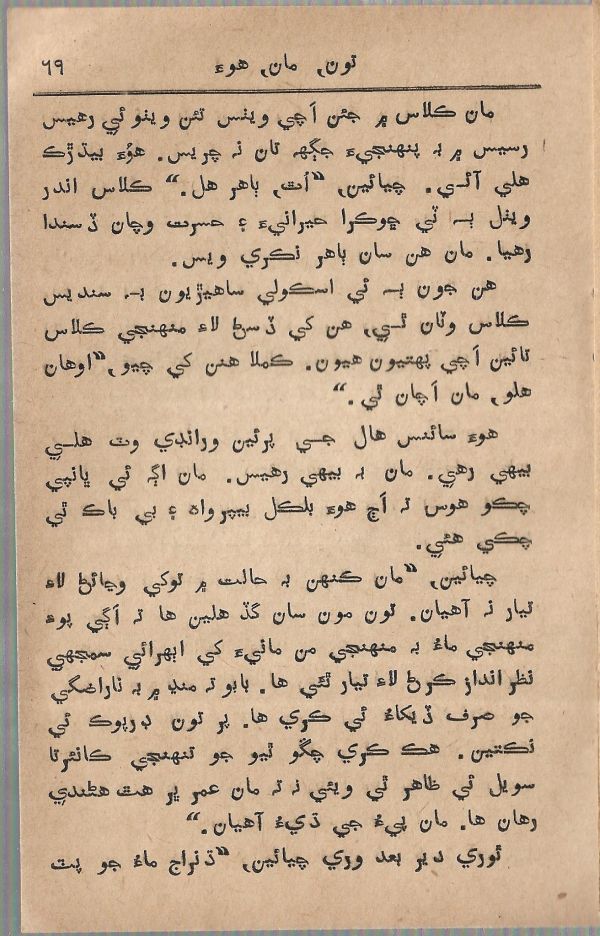 تون, مان, هوءَ
٦٩
مان ڪلاس ۾ جئن اَچي ويٺس تئن ويٺو ئي رهيس
رسيس ۾ بہ پنهنجيءَ جڳهہ تان نہ چريس. هوُءَ بيڌڙڪ
هلي آئي. چيائين, ”اُٿ, ٻاهر هل.“ ڪلاس اندر
ويٺل ٻہ ٽي ڇوڪرا حيرانيءَ ۽ حسرت وچان ڏسندا
رهيا. مان هن سان ٻاهر نڪري ويس.
هن جون ٻہ ٽي اسڪولي ساهيڙيون بہ سنديس
ڪلاس وٽان ئي, هن کي ڏسڻ لاءِ منهنجي ڪلاس
تائين اَچي پهتيون هيون. ڪملا هنن کي چيو, ”اوهان
هلو, مان اَچان ٿي.“
هوءَ سائنس هال جي پرئين ورانڊي وٽ هلي
بيهي رهي. مان بہ بيهي رهيس. مان اڳہ ئي ڀانپي
چڪو هوس تہ اَڄ هوءَ بلڪل بيپرواهہ ۽ بي باڪ ٿي
چڪي هئي.
چيائين, ”مان ڪنهن بہ حالت ۾ توکي وڃائڻ لاءِ
تيار نہ آهيان. تون مون سان گڏ هلين ها تہ اَڳي پوءِ
منهنجي ماءُ بہ منهنجي من مانيءَ کي اٻهرائي سمجهي
نظر انداز ڪرڻ لاءِ تيار ٿئي ها. بابو تہ منڍ ۾ بہ ناراضگي
جو صرف ڏيکاءُ ئي ڪري ها. پر تون ڊرپوڪ ئي
نڪتين. هڪ ڪري چڱو ٿيو جو تنهنجي ڪانئرتا
سويل ئي ظاهر ٿي ويئي نہ تہ مان عمر ڀر هٿ هڻندي
رهان ها. مان پيءُ جي ڌيءُ آهيان.“
ٿوري دير بعد وري چيائين, ”ڌنراج ماءُ جو پٽ